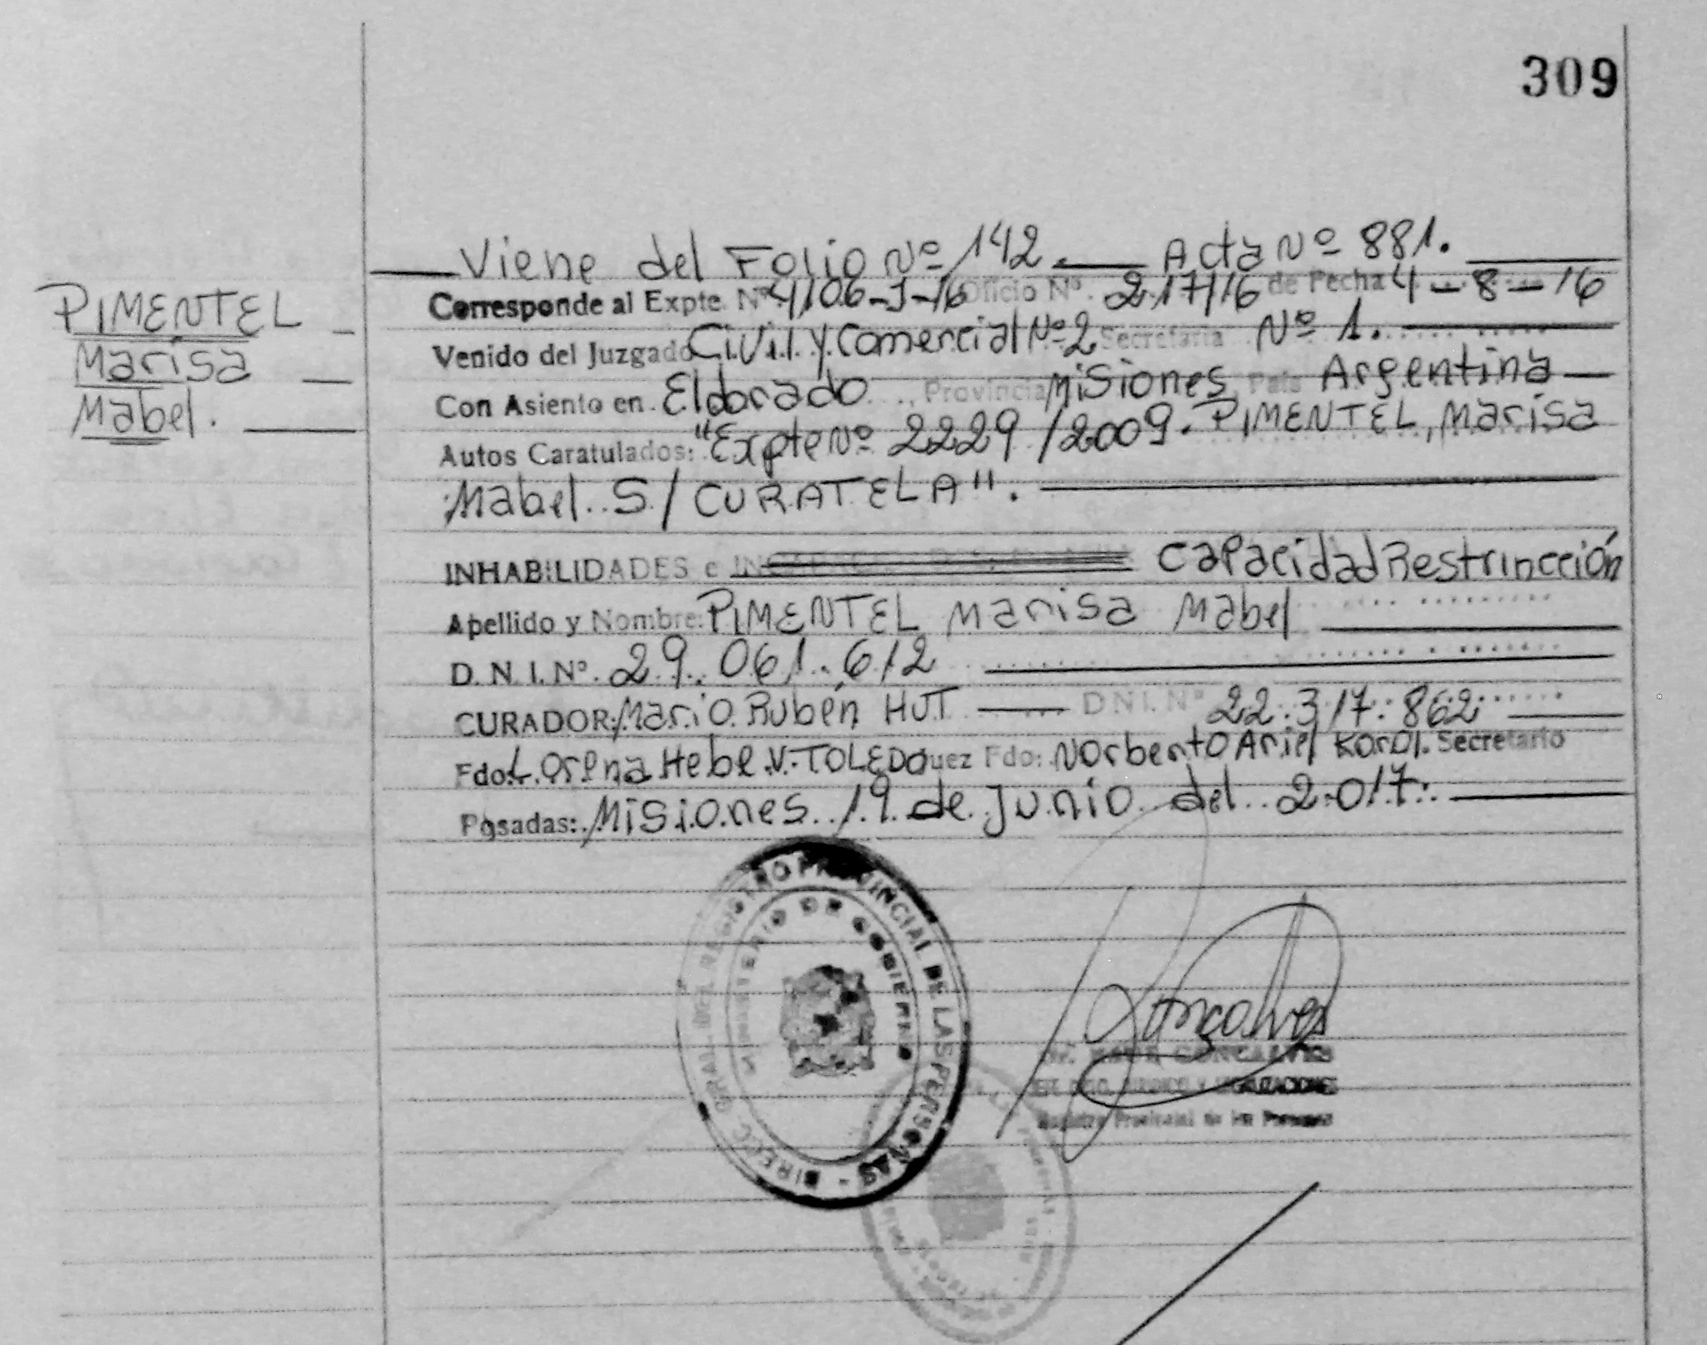 309
Viene del Folio Nº 142. Acta Nº 881.
PIMENTEL
Marisa
Mabel.
Corresponde al Expte. Nº 4106-J-16 Oficio Nº. 217/16 de Fecha 4-8-16
Venido del Juzgado Civil y Comercial Nº2 Secretaria Nº 1.
Con Asiento en Eldorado, Provincia Misiones, País Argentina
Autos Caratulados: "Expte Nº 2229/2009. PIMENTEL, Marisa
Mabel S/ CURATELA".
INHABILIDADES e Capacidad Restrincción
Apellido y Nombre: PIMENTEL Marisa Mabel
D. N. I. Nº. 29.061.612
CURADOR: Mario Rubén HUT D.N.I. Nº 22.317.862
Fdo: Lorena Hebe V. TOLEDO Juez Fdo: Norberto Ariel Korol. Secretario
Posadas: Misiones 19 de Junio del 2.017.
DIRECC. GRAL. DEL REGISTRO PROVINCIAL DE LAS PERSONAS -
MINISTERIO DE GOBIERNO
Gonçalves
GONCALVES
Registro Provincial de las Personas